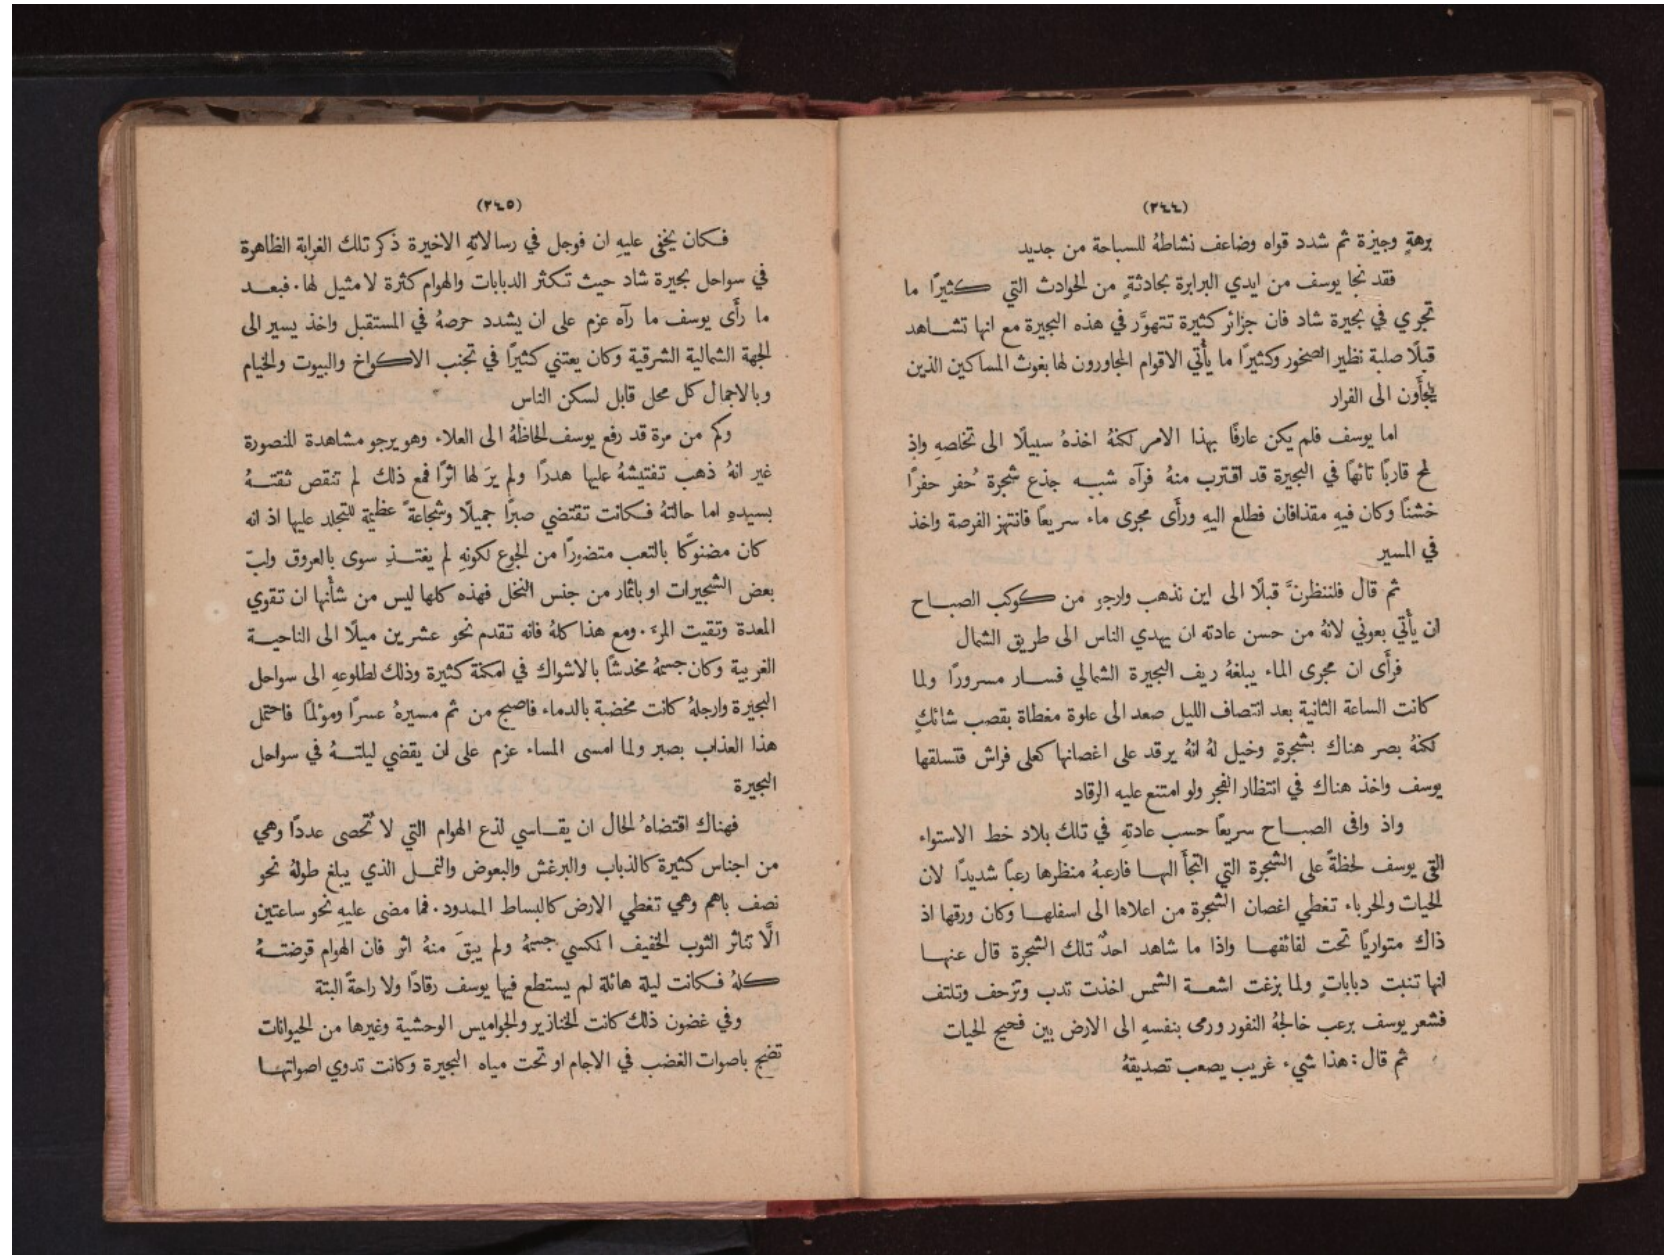 (٢٤٤)
برهةٍ وجيزة ثم شدد قواه وضاعف نشاطهُ للسباحة من جديد
فقد نجا يوسف من ايدي البرابرة بحادثةٍ من الحوادث التي كثيرًا ما
تجري في بحيرة شاد فان جزائر كثيرة تتهوَّر في هذه البحيرة مع انها تشاهد
قبلًا صلبة نظير الصخور وكثيرًا ما يأتي الاقوام المجاورون لها بغوث المساكين الذين
يلجأون الى الفرار
اما يوسف فلم يكن عارفًا بهذا الامر لكنهُ اخذهُ سبيلًا الى تخلصهِ واذ
لمح قاربًا تائهًا في البحيرة قد اقترب منهُ فرآه شبه جذع شجرة حُفر حفرًا
خشنًا وكان فيهِ مقذافان فطلع اليهِ ورأَى مجرى ماء سريعًا فانتهز الفرصة واخذ
في المسير
ثم قال فلننظرنَّ قبلًا الى اين نذهب وارجو من كوكب الصباح
ان يأتي بعوني لانهُ من حسن عادته ان يهدي الناس الى طريق الشمال
فرأَى ان مجرى الماء يبلغهُ ريف البحيرة الشمالي فسار مسرورًا ولما
كانت الساعة الثانية بعد انتصاف الليل صعد الى علوة مغطاة بقصب شائكٍ
لكنهُ بصر هناك بشجرةٍ وخيل لهُ انهُ يرقد على اغصانها كعلى فراش فتسلقها
يوسف واخذ هناك في انتظار الفجر ولو امتنع عليه الرقاد
واذ وافى الصباح سريعًا حسب عادتهِ في تلك بلاد خط الاستواء
القى يوسف لحظةً على الشجرة التي التجأَ اليها فارعبهُ منظرها رعبًا شديدًا لان
الحيات والحرباء تغطي اغصان الشجرة من اعلاها الى اسفلها وكان ورقها اذ
ذاك متواريًا تحت لفائفها واذا ما شاهد احدٌ تلك الشجرة قال عنها
انها تنبت دباباتٍ ولما بزغت اشعة الشمس اخذت تدب وتزحف وتلتف
فشعر يوسف برعب خالجهُ النفور ورمى بنفسهِ الى الارض بين فحيح الحيات
ثم قال: هذا شيء غريب يصعب تصديقهُ
(٢٤٥)
فكان يخفى عليهِ ان فوجل في رسالاتهِ الاخيرة ذكر تلك الغرابة الظاهرة
في سواحل بحيرة شاد حيث تكثر الدبابات والهوام كثرة لا مثيل لها. فبعد
ما رأَى يوسف ما رآه عزم على ان يشدد حرصهُ في المستقبل واخذ يسير الى
الجهة الشمالية الشرقية وكان يعتني كثيرًا في تجنب الاكواخ والبيوت والخيام
وبالاجمال كل محل قابل لسكن الناس
وكم من مرة قد رفع يوسف الحاظهُ الى العلاء وهو يرجو مشاهدة المنصورة
غير انهُ ذهب تفتيشهُ عليها هدرًا ولم يرَ لها اثرًا فمع ذلك لم تنقص ثقتهُ
بسيدهِ اما حالتهُ فكانت تقتضي صبرًا جميلًا وشجاعةً عظيمة للتجلد عليها اذ انه
كان مضنوكًا بالتعب متضورًا من الجوع لكونهِ لم يغتذِ سوى بالعروق ولبّ
بعض الشجيرات او باثمار من جنس النخل فهذه كلها ليس من شأنها ان تقوي
المعدة وتقيت المرءَ. ومع هذا كلهُ فانه تقدم نحو عشرين ميلًا الى الناحية
الغربية وكان جسمهُ مخدشًا بالاشواك في امكنة كثيرة وذلك لطلوعهِ الى سواحل
البحيرة وارجلهُ كانت مخضبة بالدماء فاصبح من ثم مسيرهُ عسرًا ومؤلمًا فاحتمل
هذا العذاب بصبر ولما امسى المساء عزم على ان يقضي ليلتهُ في سواحل
البحيرة
فهناك اقتضاهُ الحال ان يقاسي لذع الهوام التي لا تُحصى عددًا وهي
من اجناس كثيرة كالذباب والبرغش والبعوض والنمل الذي يبلغ طولهُ نحو
نصف باهم وهي تغطي الارض كالبساط الممدود. فما مضى عليهِ نحو ساعتين
الَّا تناثر الثوب الخفيف المكسي جسمهُ ولم يبقَ منهُ اثر فان الهوام قرضتهُ
كلهُ فكانت ليلة هائلة لم يستطع فيها يوسف رقادًا ولا راحةً البتة
وفي غضون ذلك كانت الخنازير والجواميس الوحشية وغيرها من الحيوانات
تضج باصوات الغضب في الاجام او تحت مياه البحيرة وكانت تدوي اصواتها